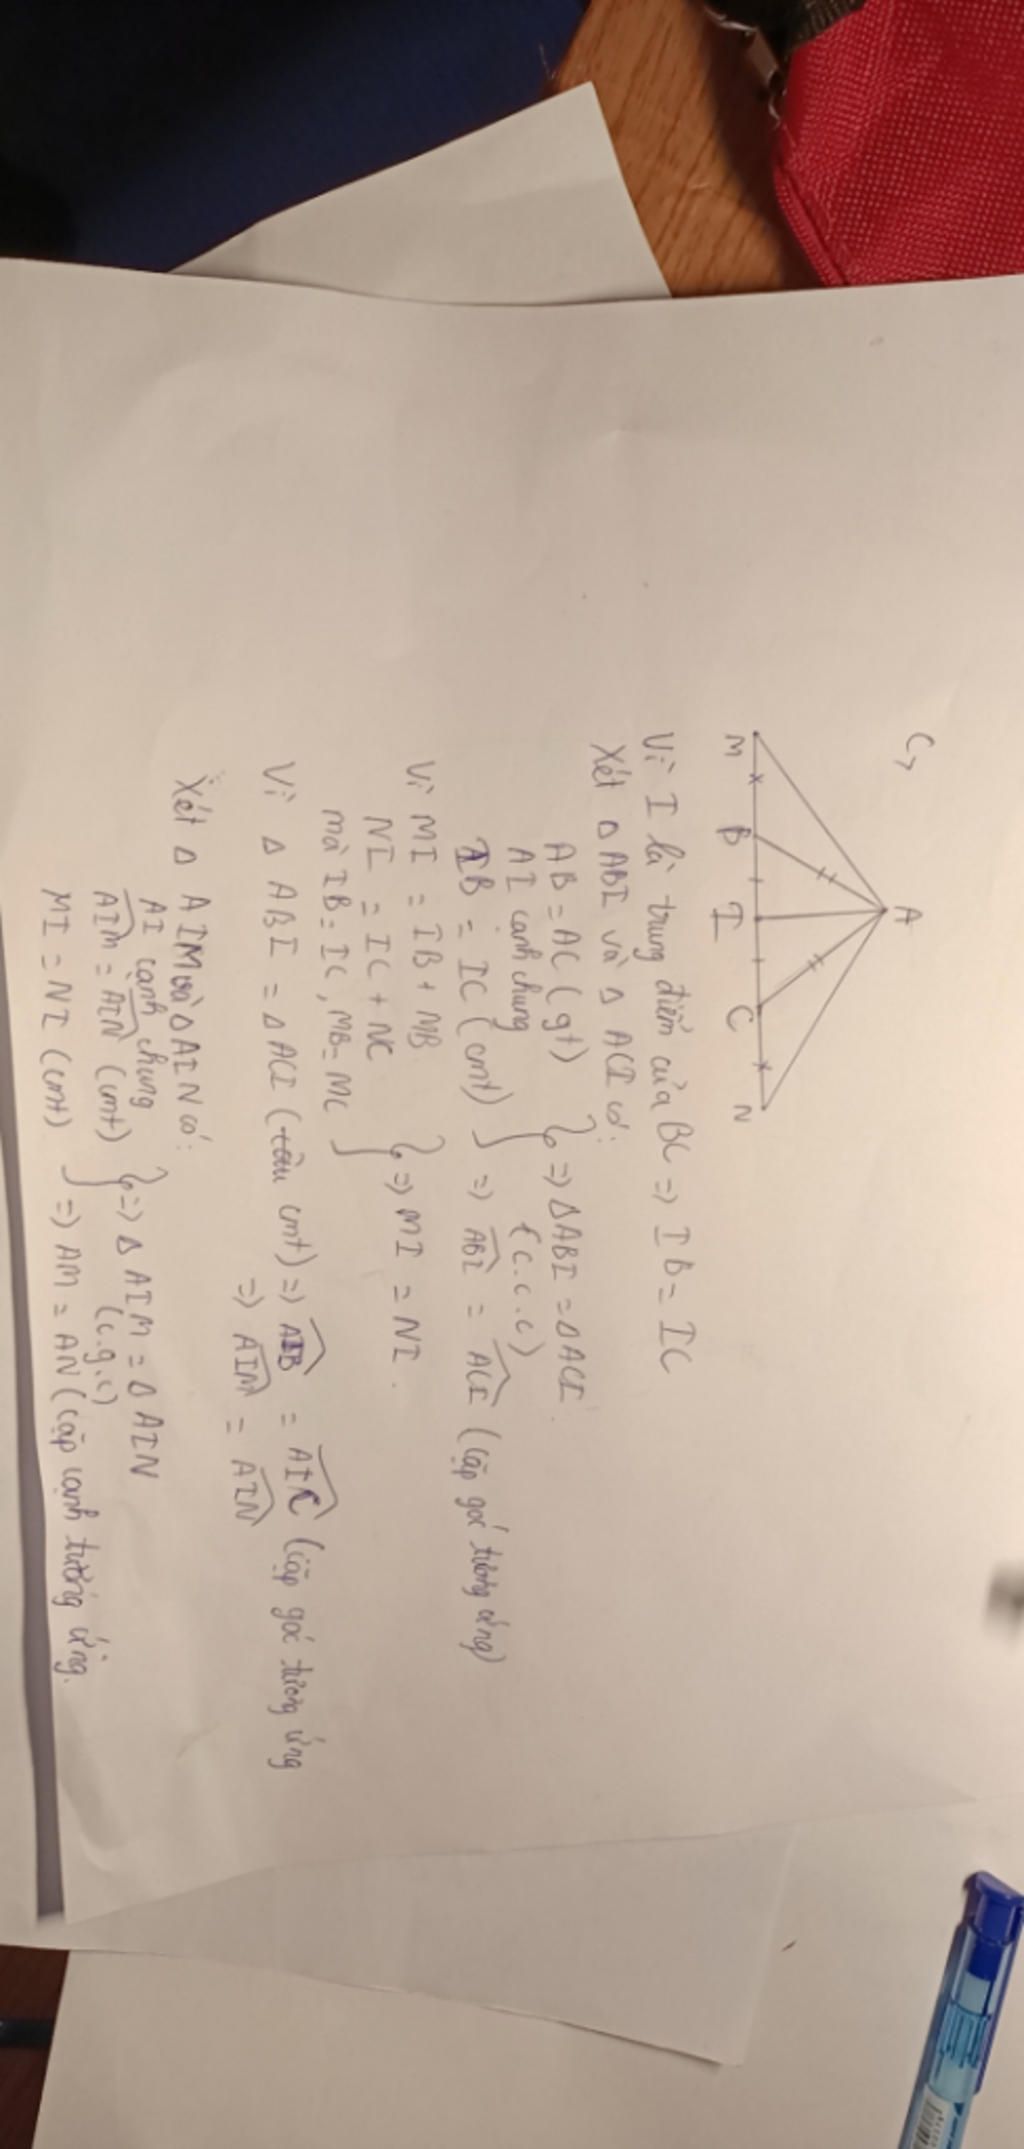 C,
A
M B I C N
Vì I là trung điểm của BC => IB = IC
Xét Δ ABI và Δ ACI có:
AB = AC (gt)
AI cạnh chung
IB = IC (cmt)
} => Δ ABI = Δ ACI
(c.c.c)
=> ABI = ACI (cặp góc tương ứng)
Vì MI = IB + MB
NI = IC + NC
mà IB = IC, MB = MC
} => MI = NI.
Vì Δ ABI = Δ ACI (cmt) => AIB = AIC (cặp góc tương ứng
=> AIM = AIN
Xét Δ AIM và Δ AIN có:
AI cạnh chung
AIM = AIN (cmt)
MI = NI (cmt)
} => Δ AIM = Δ AIN
(c.g.c)
=> AM = AN (cặp cạnh tương ứng.